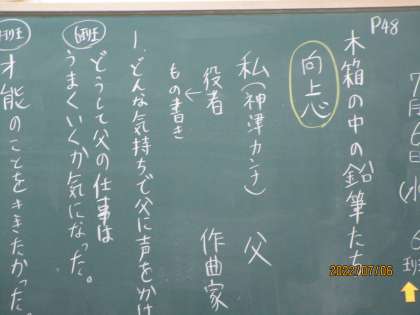 7月6日(水)
P48
木箱の中の鉛筆たち
向上心
私(神津カンナ) 父
役者 作曲家
←
もの書き
1.どんな気持ちで父に声をかけ
6班
どうして父の仕事は
うまくいくか気になった。
班
才能のことをききたかった。
2022/07/06